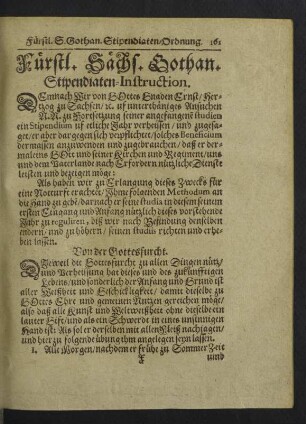 Fürstl. S. Gothan. Stipendiaten-Ordnung. 161
Fürstl. Sächs. Gothan.
Stipendiaten-Instruction.
DEmnach Wir von GOttes Gnaden Ernst/ Her-
tzog zu Sachsen/ ꝛc. uf unterthäniges Ansuchen
N. N. zu Fortsetzung seiner angefangenē studien
ein Stipendium uf etliche Jahr verheisen/ und zugesa-
get/ er aber dargegen sich verpflichtet/ solches Beneficium
der massen anzuwenden und zugebrauchen/ daß er der-
maleins GOtt und seiner Kirchen und Regiment/ uns
und dem Vaterlande nach Erfordern nützliche Dienste
leisten und bezeigen möge:
Als haben wir zu Erlangung dieses Zwecks für
eine Notturft erachtet/ Ihme folgenden Methodum an
die Hand zu geben/ darnach er seine studia in diesem seinen
ersten Eingang und Anfang nützlich dieses vorstehende
Jahr zu reguliren, biß wir nach Befindung denselben
endern/ und zu höhern/ seinen studiis richten und erhe-
ben lassen.
Von der Gottesfurcht.
DIeweil die Gottesfurcht zu allen Dingen nütz/
und Verheissung hat dieses und des zukünfftigen
Lebens/ und sonderlich der Anfang und Grund ist
aller Weißheit und Geschickligkeit/ damit dieselbe zu
GOttes Ehre und gemeinen Nutzen gereichen möge/
also daß alle Kunst und Weltweißheit ohne dieselbe ein
lauter Gift/ und als ein Schwerdt in eines unsinnigen
Hand ist: Als sol er derselben mit allen Fleiß nachjagen/
und hierzu folgende übung ihm angelegen seyn lassen.
1. Alle Morgen/ nachdem er frühe zu Sommer Zeit
und